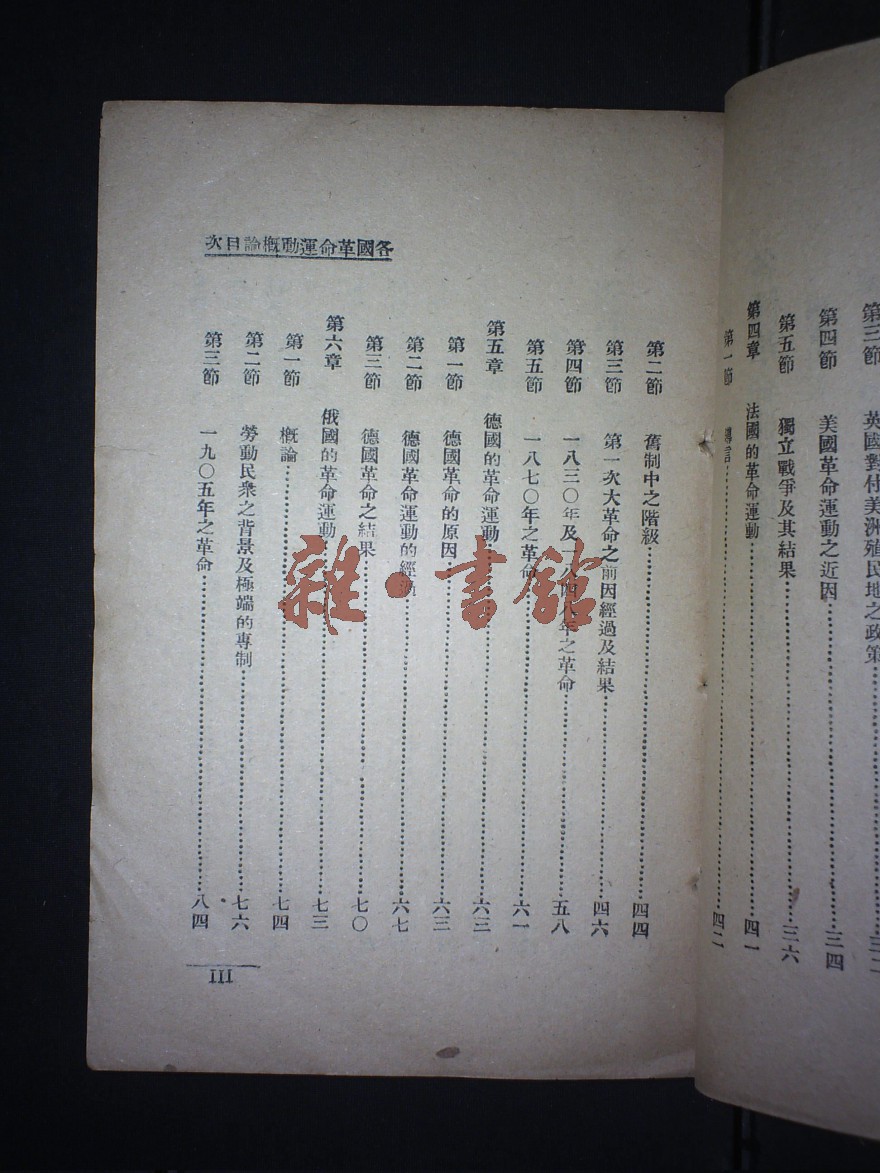 第三節　英國對付美洲殖民地之政策……三二
第四節　美國革命運動之近因……三四
第五節　獨立戰爭及其結果……三六
第四章　法國的革命運動……四一
第一節　導言……四二
第二節　舊制中之階級……四四
第三節　第一次大革命之前因經過及結果……四六
第四節　一八三〇年及一八四八年之革命……五八
第五節　一八七〇年之革命……六一
第五章　德國的革命運動……六三
第一節　德國革命的原因……六三
第二節　德國革命運動的經過……六七
第三節　德國革命之結果……七〇
第六章　俄國的革命運動……七三
第一節　概論……七四
第二節　勞動民衆之背景及極端的專制……七六
第三節　一九〇五年之革命……八四
各國革命運動概論目次
III
雜·書館